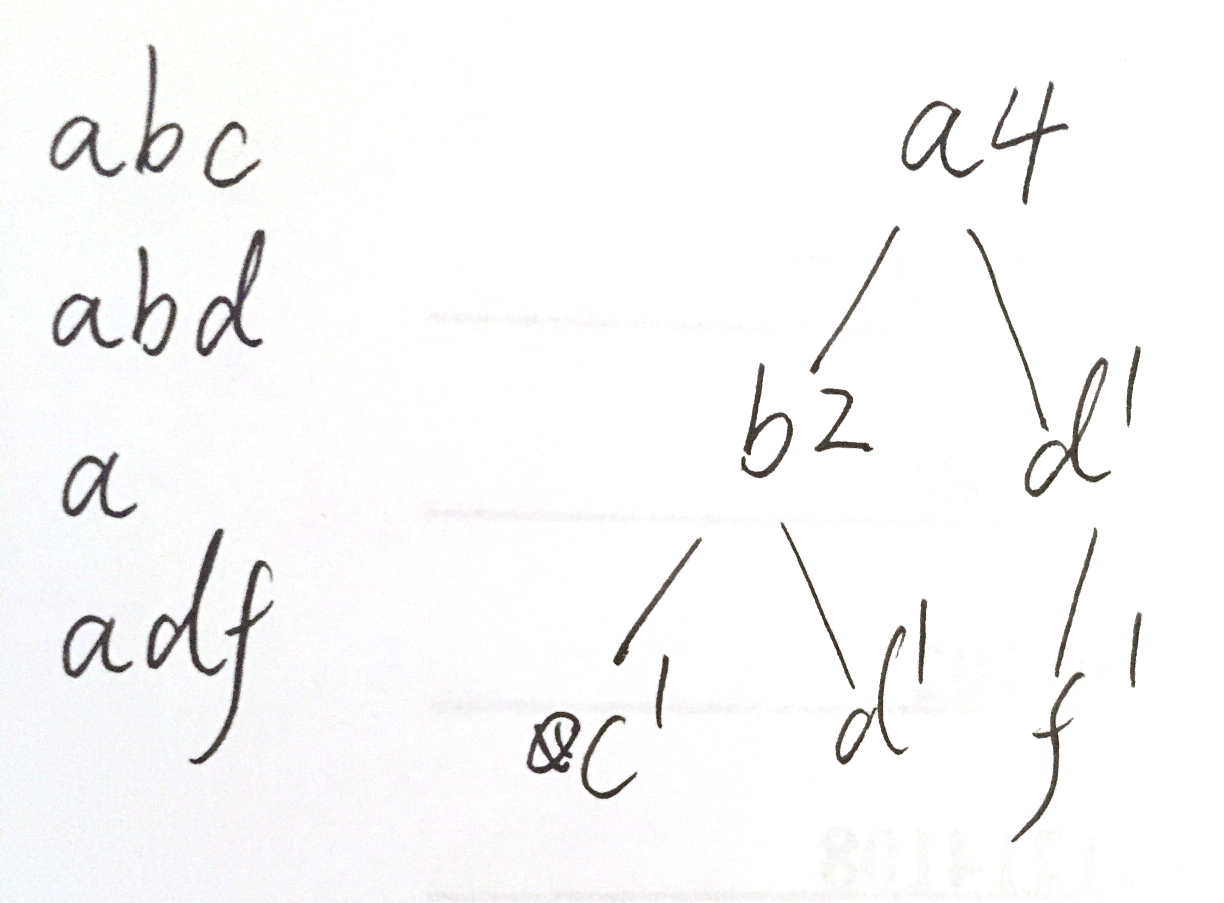 abc
abd
a
adf
a4
b2 d1
c1 d1 f1